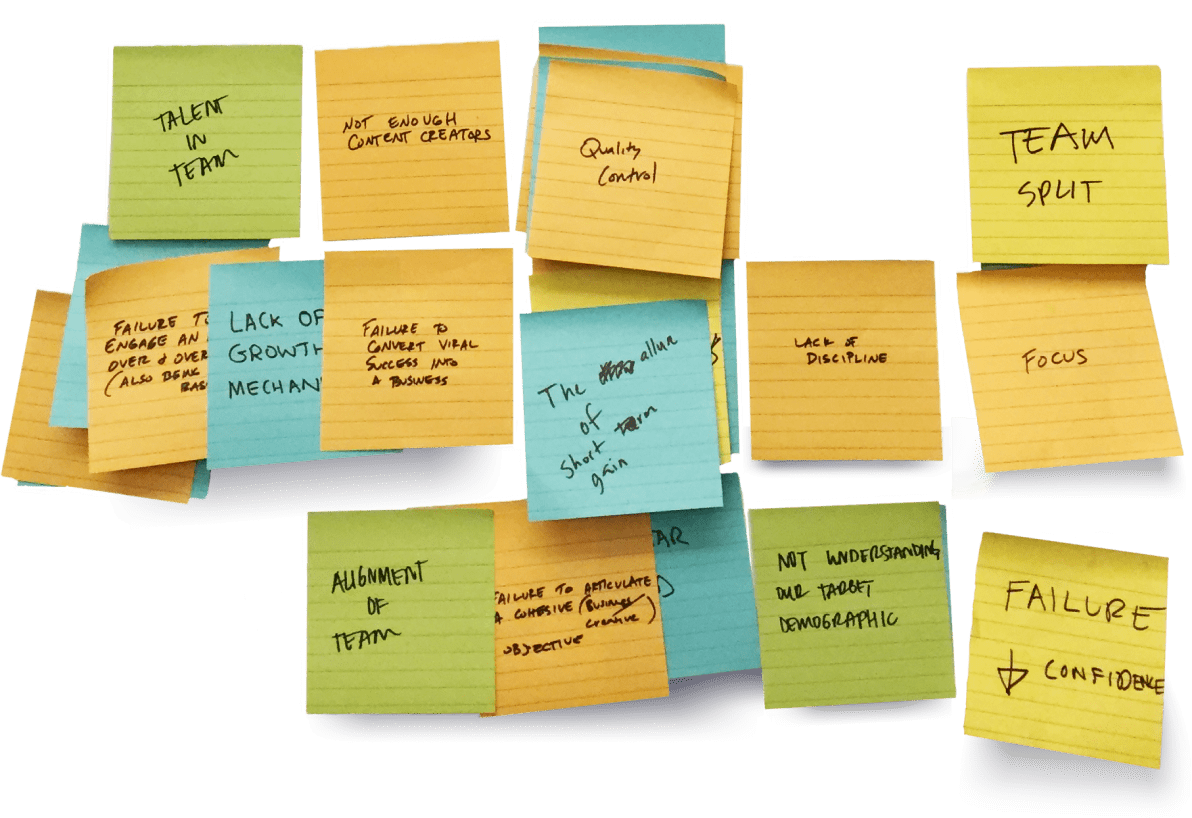 TALENT
IN
TEAM
NOT ENOUGH
CONTENT CREATORS
Quality
Control
TEAM
SPLIT
FAILURE TO
ENGAGE AN
OVER & OVER
(ALSO BEING
LACK OF
GROWTH
FAILURE TO
CONVERT VIRAL
SUCCESS INTO
A BUSINESS
The allure
of
short term
gain
LACK OF
DISCIPLINE
FOCUS
ALIGNMENT
OF
TEAM
FAILURE TO ARTICULATE
A COHESIVE (BUSINESS
CREATIVE)
OBJECTIVE
NOT UNDERSTANDING
OUR TARGET
DEMOGRAPHIC
FAILURE
↓ CONFIDENCE